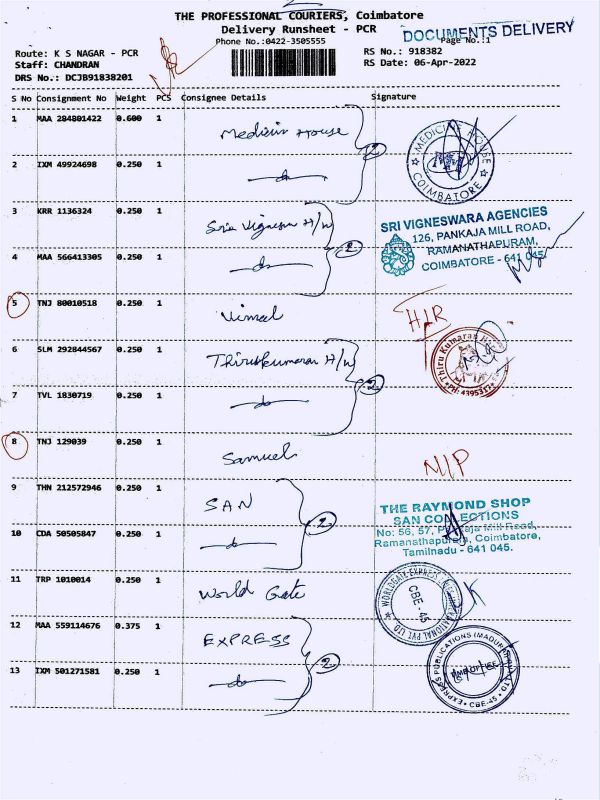 THE PROFESSIONAL COURIERS, Coimbatore
Delivery Runsheet - PCR
DOCUMENTS DELIVERY
Phone No.:0422-3505555
Page No.:1
Route: K S NAGAR - PCR
RS No.: 918382
Staff: CHANDRAN
RS Date: 06-Apr-2022
DRS No.: DCJB91838201
S No Consignment No Weight PCS Consignee Details Signature
1 MAA 284801422 0.600 1 Medisin House 2
MEDICINE HOUSE
COIMBATORE
2 IXM 49924698 0.250 1 do
3 KRR 1136324 0.250 1 Sri Vignesh H/W 2
SRI VIGNESWARA AGENCIES
126, PANKAJA MILL ROAD,
RAMANATHAPURAM,
COIMBATORE - 641 045.
4 MAA 566413305 0.250 1 do
5 TNJ 80010518 0.250 1 Vimal
6 SLM 292844567 0.250 1 Thirukumaran H/W 2
Thiru Kumaran
PH: 439531
7 TVL 1830719 0.250 1 do
8 TNJ 129039 0.250 1 Samuel N/P
9 THN 212572946 0.250 1 SAN 2
THE RAYMOND SHOP
SAN COLLECTIONS
No: 56, 57, Pankaja Mill Road,
Ramanathapuram, Coimbatore,
Tamilnadu - 641 045.
10 CDA 50505847 0.250 1 do
11 TRP 1010014 0.250 1 World Gate
WORLDGATE EXPRESS INTERNATIONAL PVT LTD
CBE - 45
12 MAA 559114676 0.375 1 EXPRESS 2
EXPRESS PUBLICATIONS (MADURAI) LTD
CBE-45
13 IXM 501271581 0.250 1 do